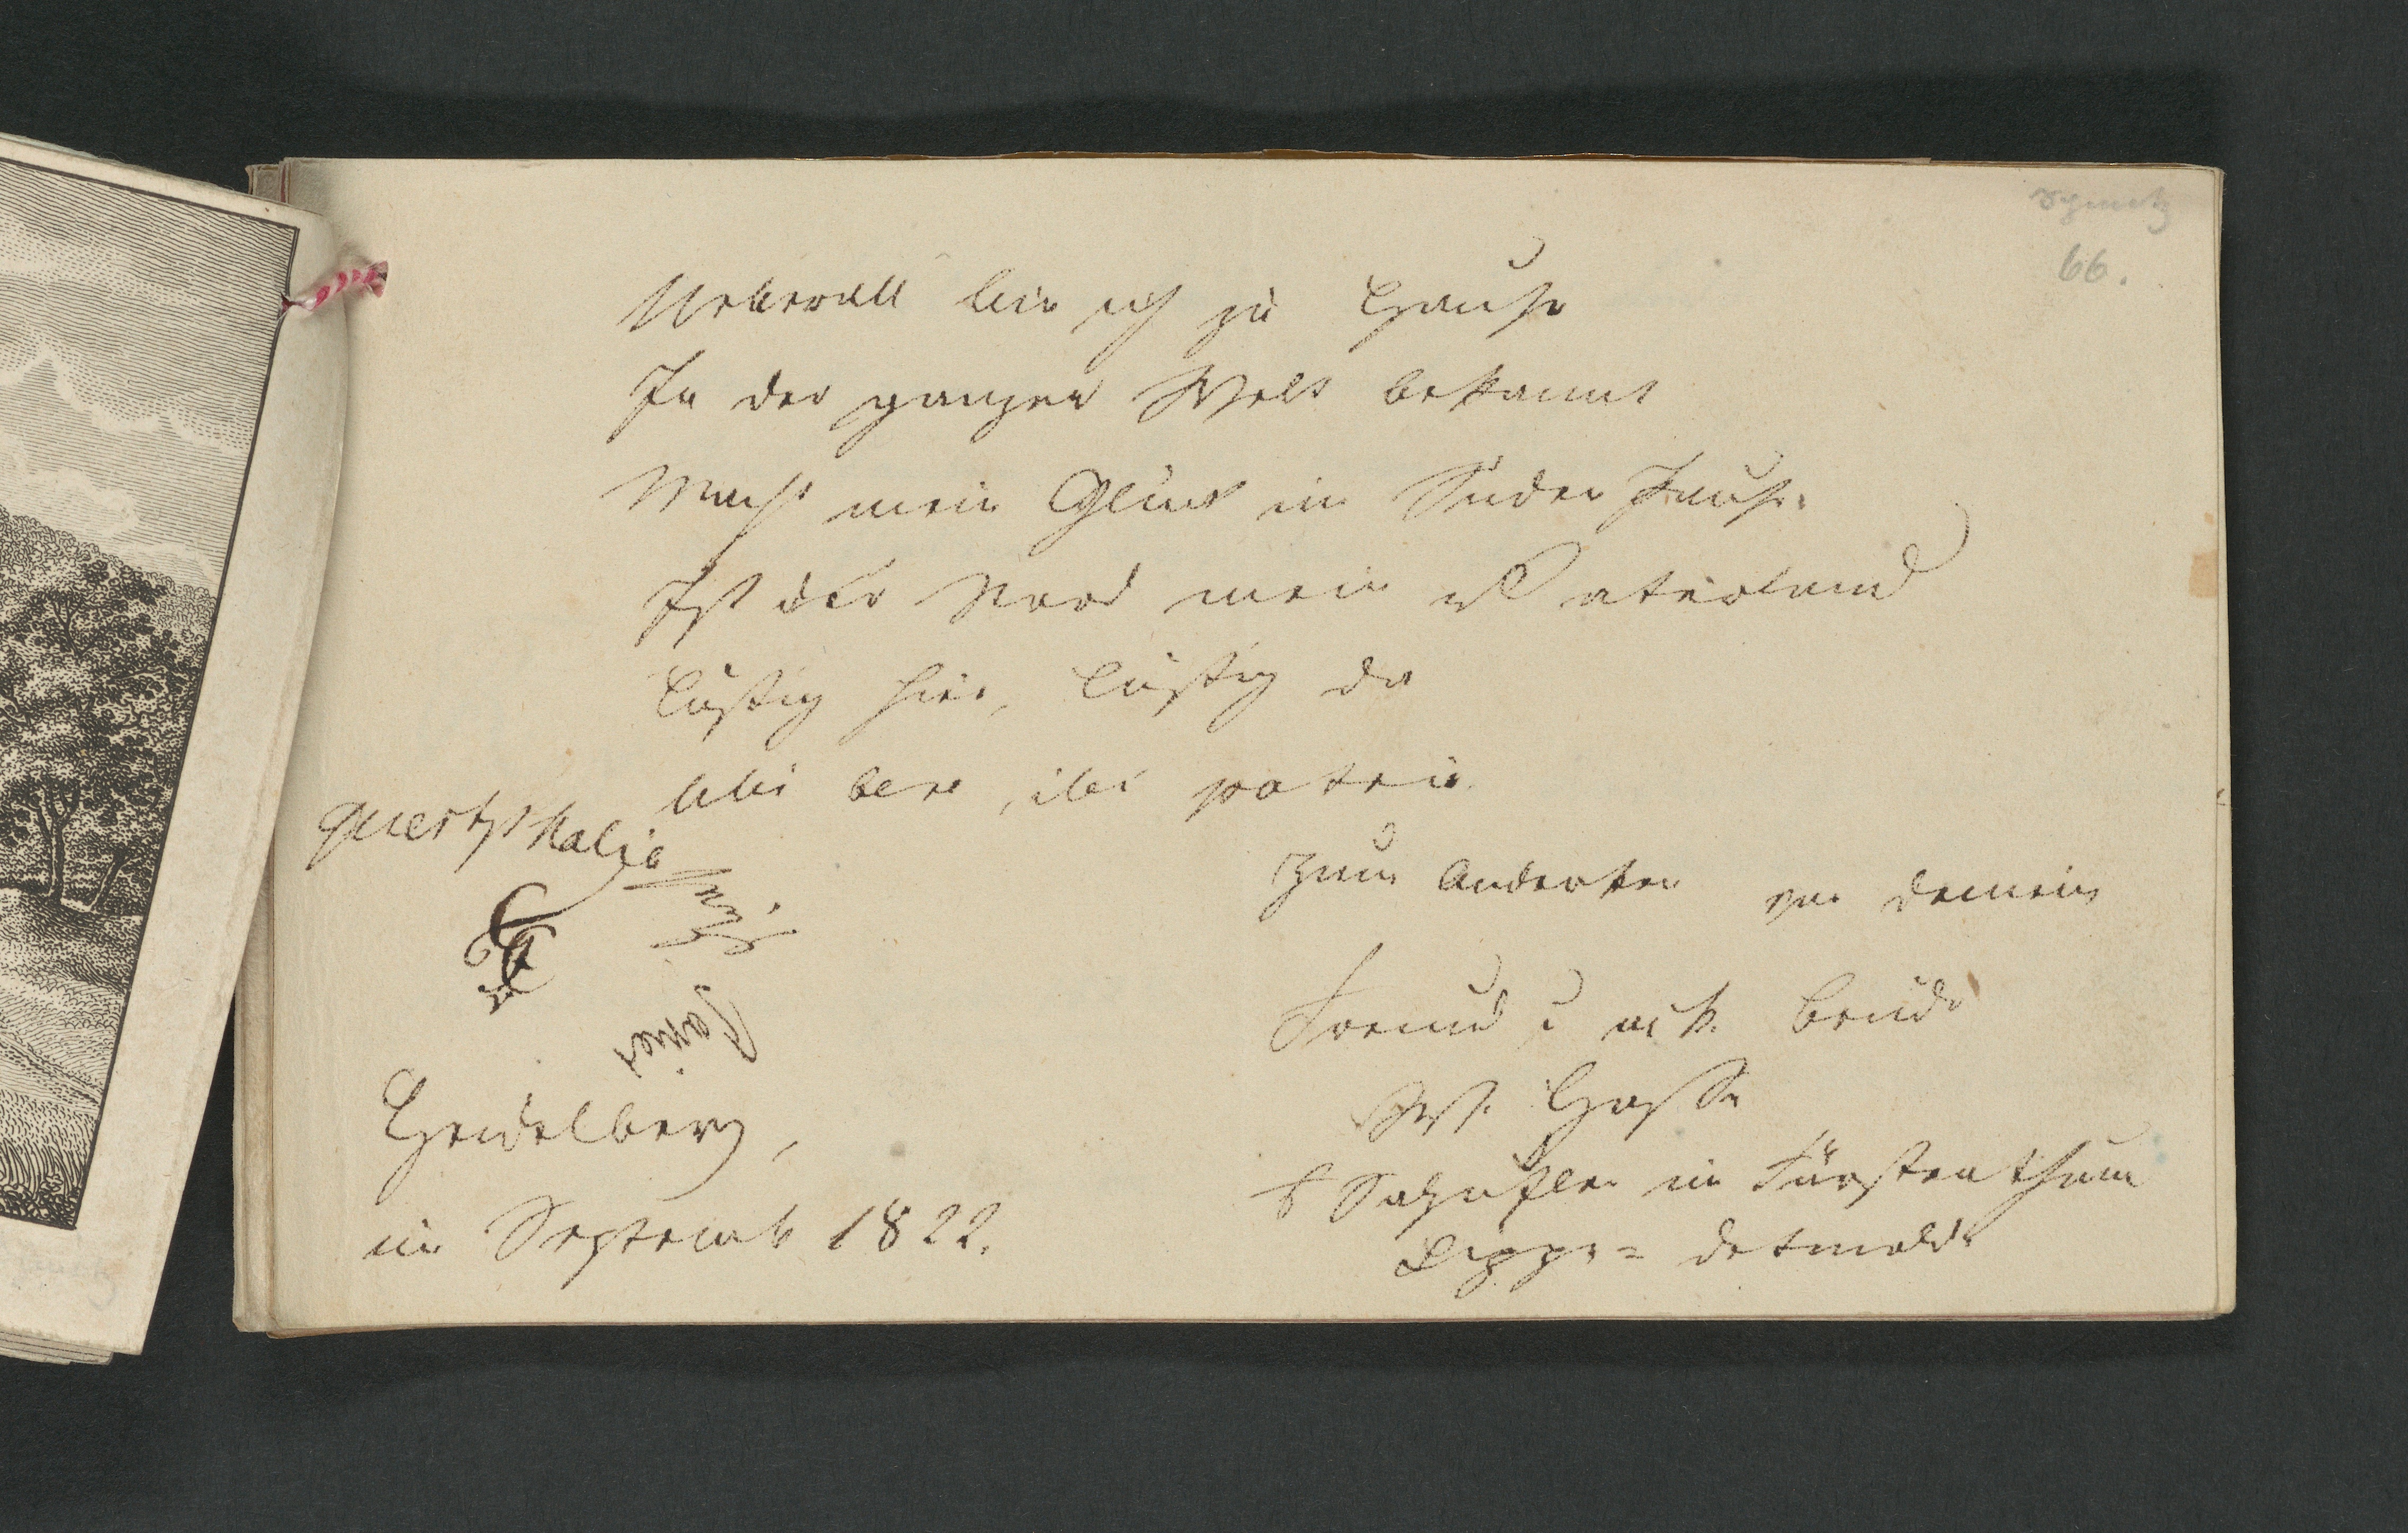 66.
Ueberall bin ich zu Hause
In der ganzen Welt bekannt
Macht mein Glück im Süden Pause
Ist der Nord mein Vaterland
Lustig hier, lustig da
Ubi bene, ibi patria.
Guestphalia
Zum Andenken von deinem
Freund u
W. Hasse
Heidelberg,
im Septemb 1822.
Salzuflen im Fürstenthum
Lippe=Detmold